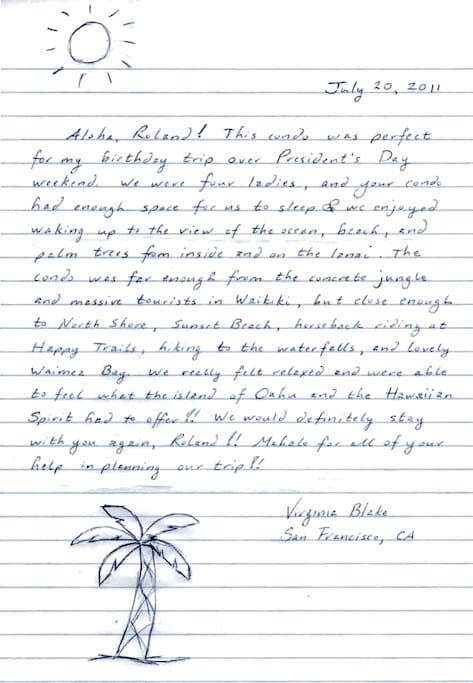 July 20, 2011
Aloha, Roland! This condo was perfect
for my birthday trip over President's Day
weekend. We were four ladies, and your condo
had enough space for us to sleep & we enjoyed
waking up to the view of the ocean, beach, and
palm trees from inside and on the lanai. The
condo was far enough from the concrete jungle
and massive tourists in Waikiki, but close enough
to North Shore, Sunset Beach, horseback riding at
Happy Trails, hiking to the waterfalls, and lovely
Waimea Bay. We really felt relaxed and were able
to feel what the island of Oahu and the Hawaiian
Spirit had to offer!! We would definitely stay
with you again, Roland!! Mahalo for all of your
help in planning our trip!!
Virginia Blake
San Francisco, CA